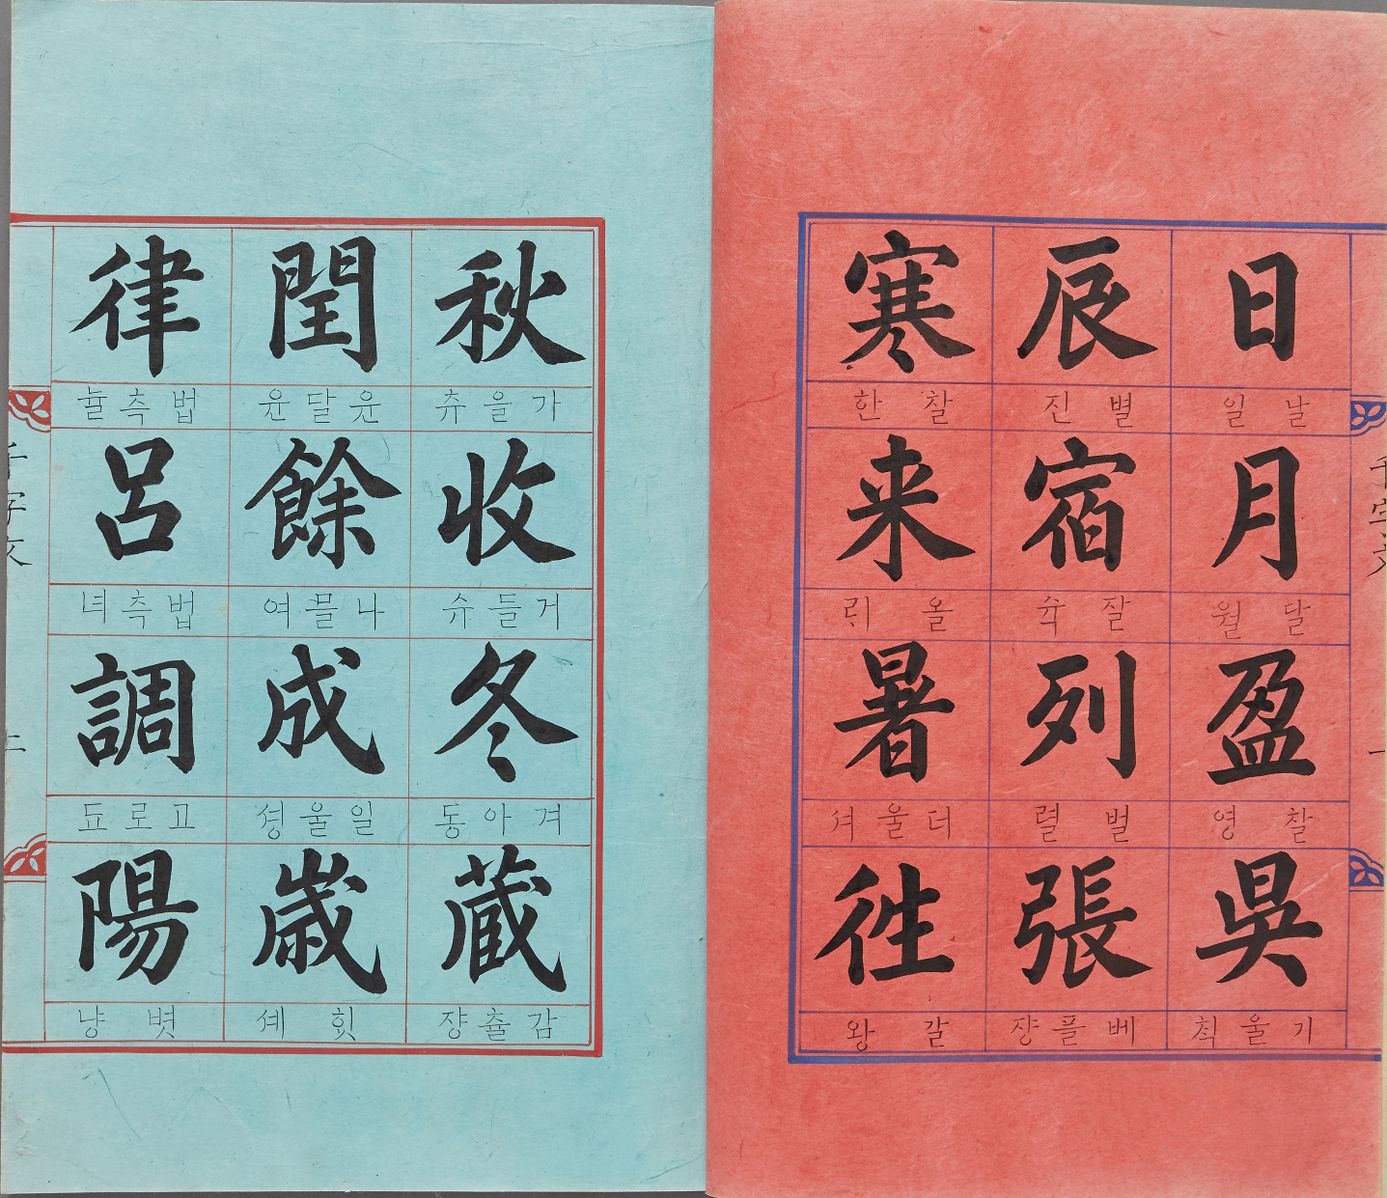 千字文 一
日
날일
月
달월
盈
찰영
昗
기울칙
辰
별진
宿
잘슉
列
벌렬
張
베플쟝
寒
찰한
来
올리
暑
더울셔
徃
갈왕
秋
가을츄
收
거들슈
冬
겨아동
蔵
감츌쟝
閏
윤달윤
餘
나믈여
成
일울셩
歳
힛셰
律
법측뉼
呂
법측녀
調
고로됴
陽
볏냥
千字文 二